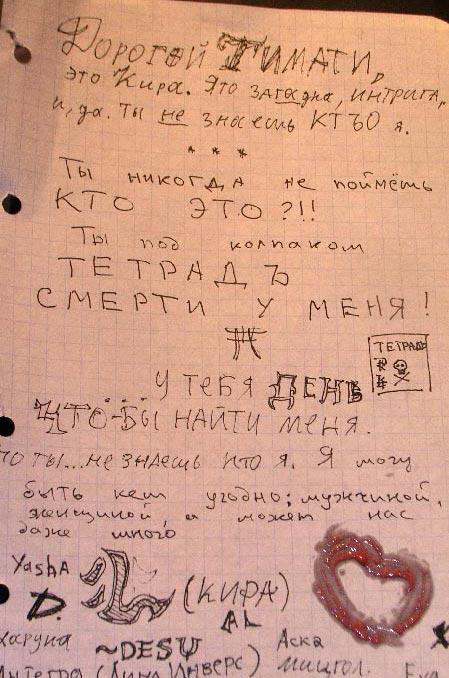 Дорогой Тимати,
это Кира. Это загадка, интрига,
и, да. Ты не знаешь КТЪО я.
* * *
Ты никогда не поймёшь
КТО ЭТО?!!
Ты под колпаком
ТЕТРАДЬ
СМЕРТИ У МЕНЯ!
ТЕТРАДЬ
У тебя ДЕНЬ
ЧТО-БЫ НАЙТИ меня.
но ты... не знаешь кто я. Я могу
быть кем угодно: мужчиной,
женщиной, а может нас
даже много
YashA L (КИРА)
D. AL
Харуна ~DESU Аска
Интегра (Лина Инверс) мицгол.